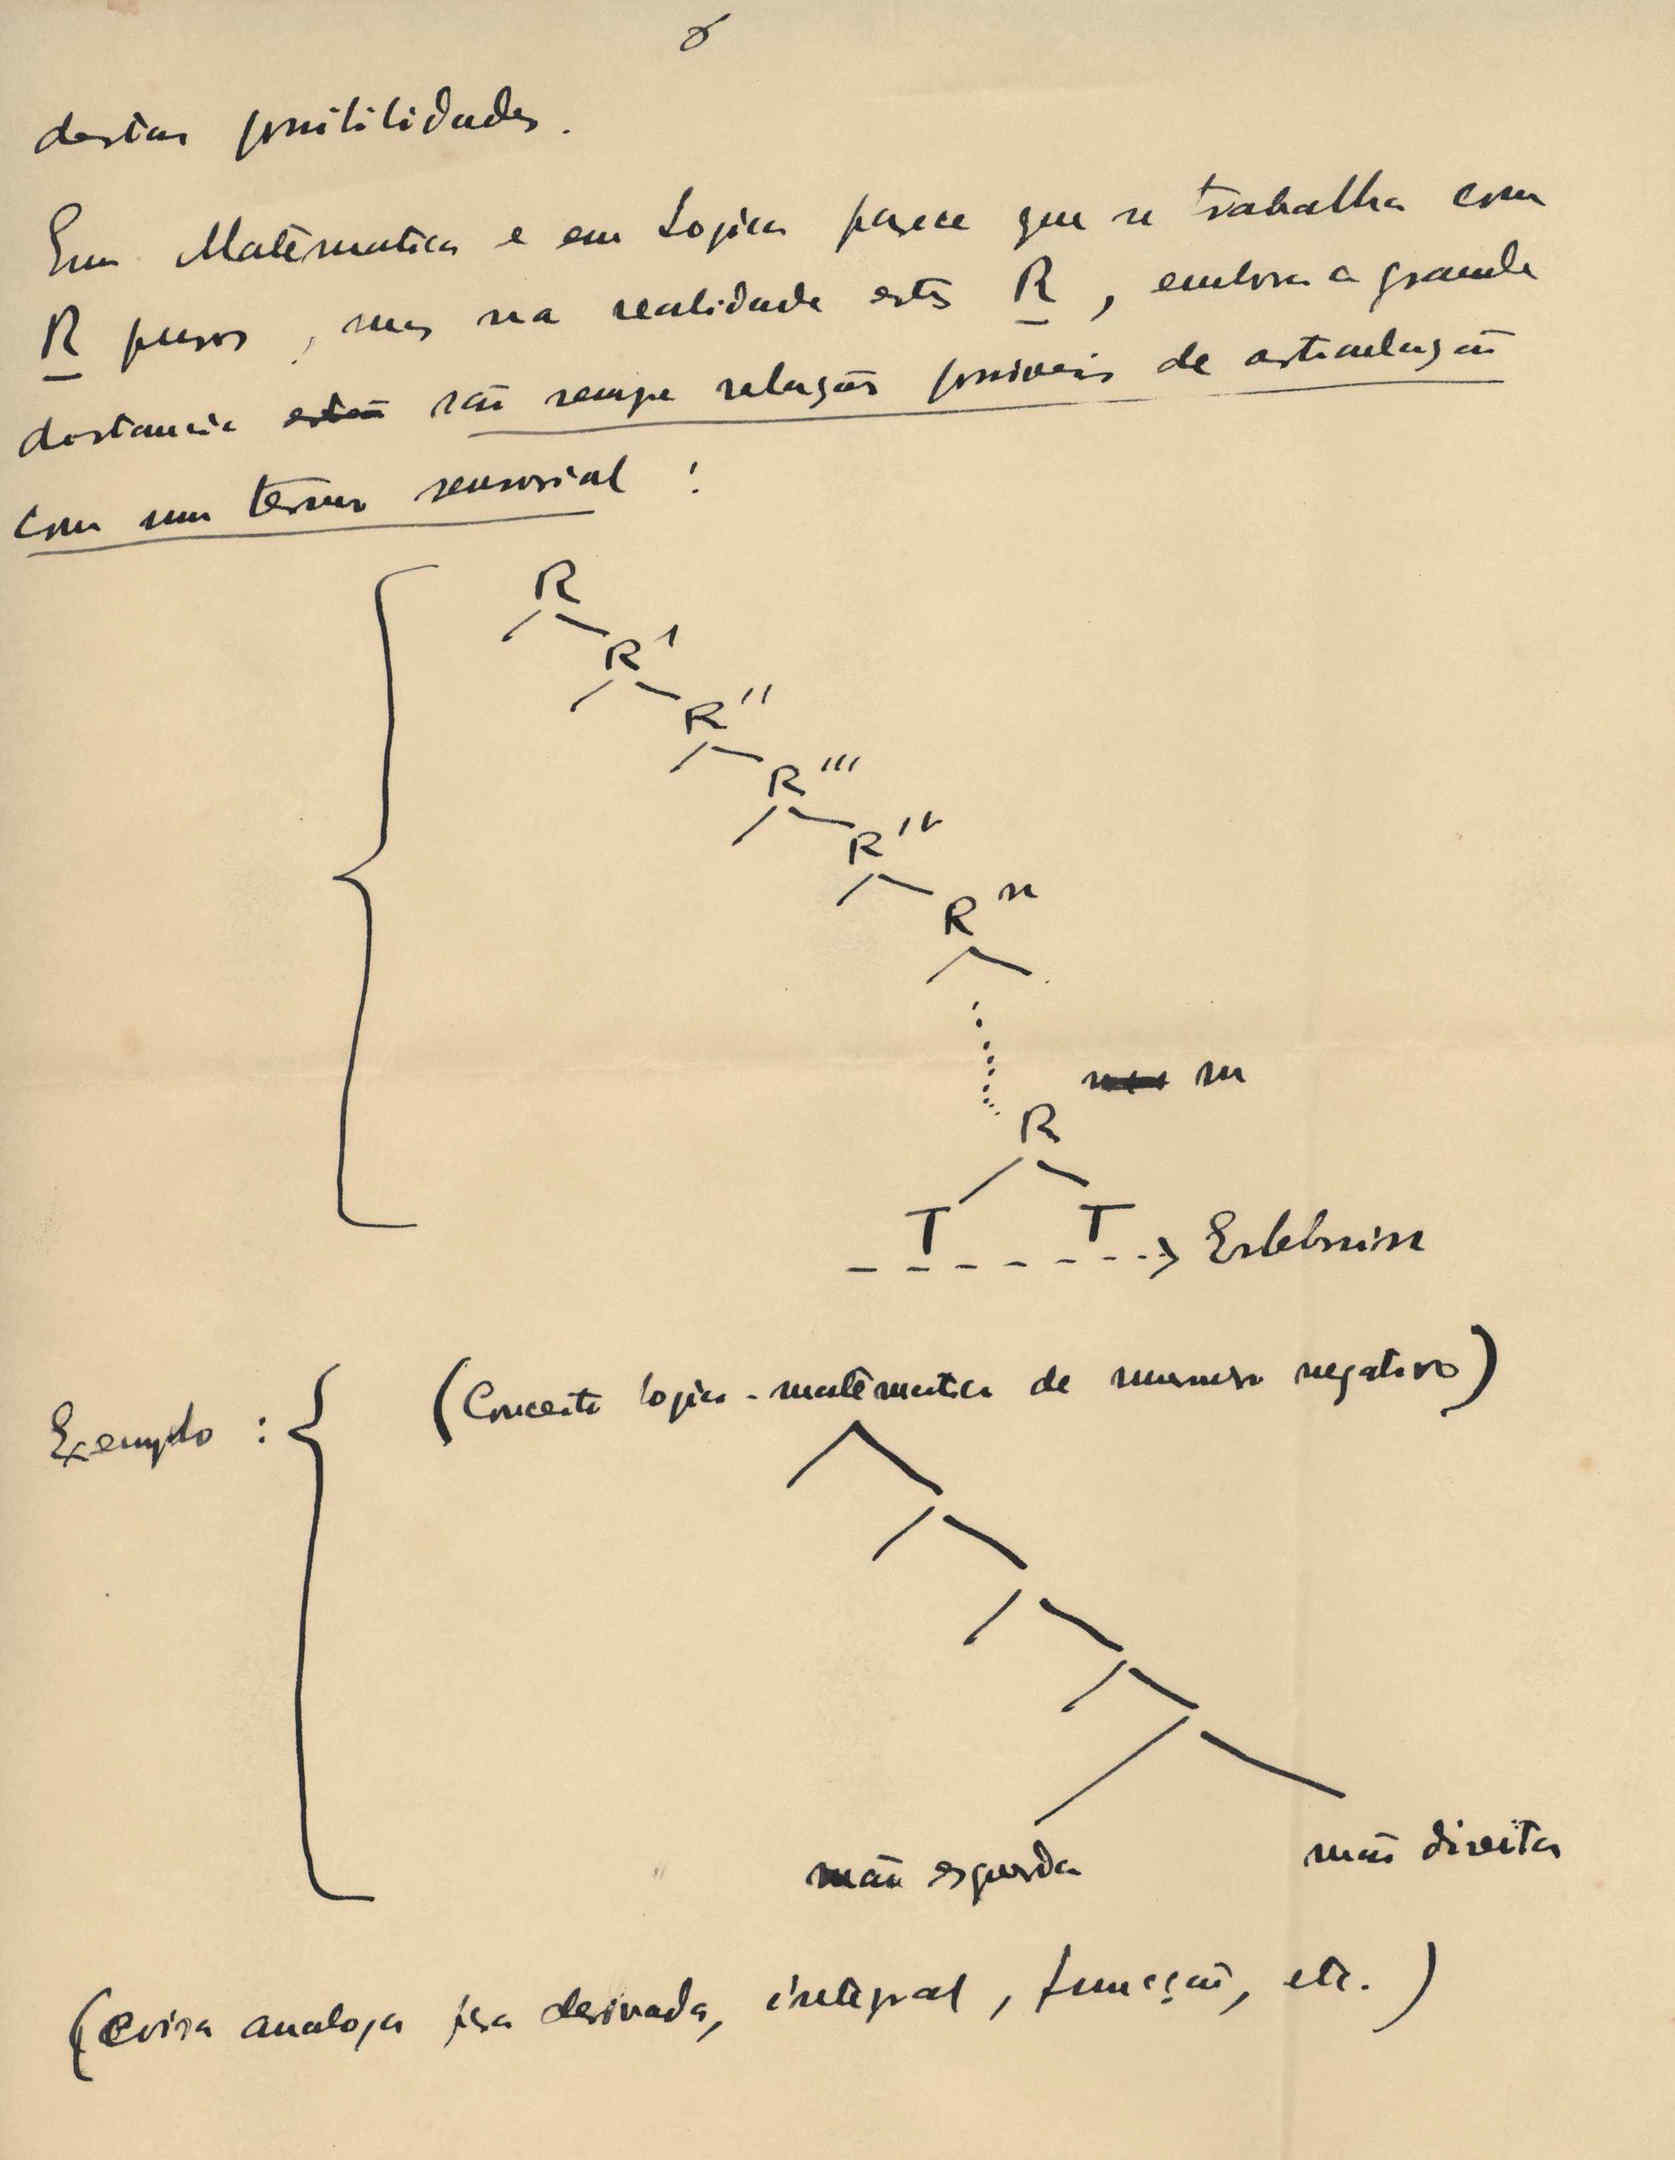 destas possibilidades.
Em Matematica e em Logica parece que se trabalha com
R puros, mas na realidade estes R, embora a grande
distancia estão são sempre relações possiveis de articulação
com um termo sensorial :
R
R'
R''
R'''
R'v
R n
m
R
T T
Erlebniss
Exemplo : (Conceito logico-matematico de numero negativo)
mão esquerda mão direita
(Coisa analoga para derivada, integral, funcção, etc.)